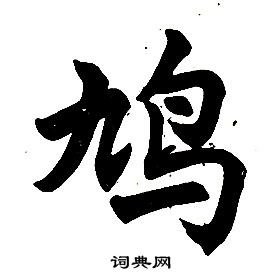 鸠
词典网